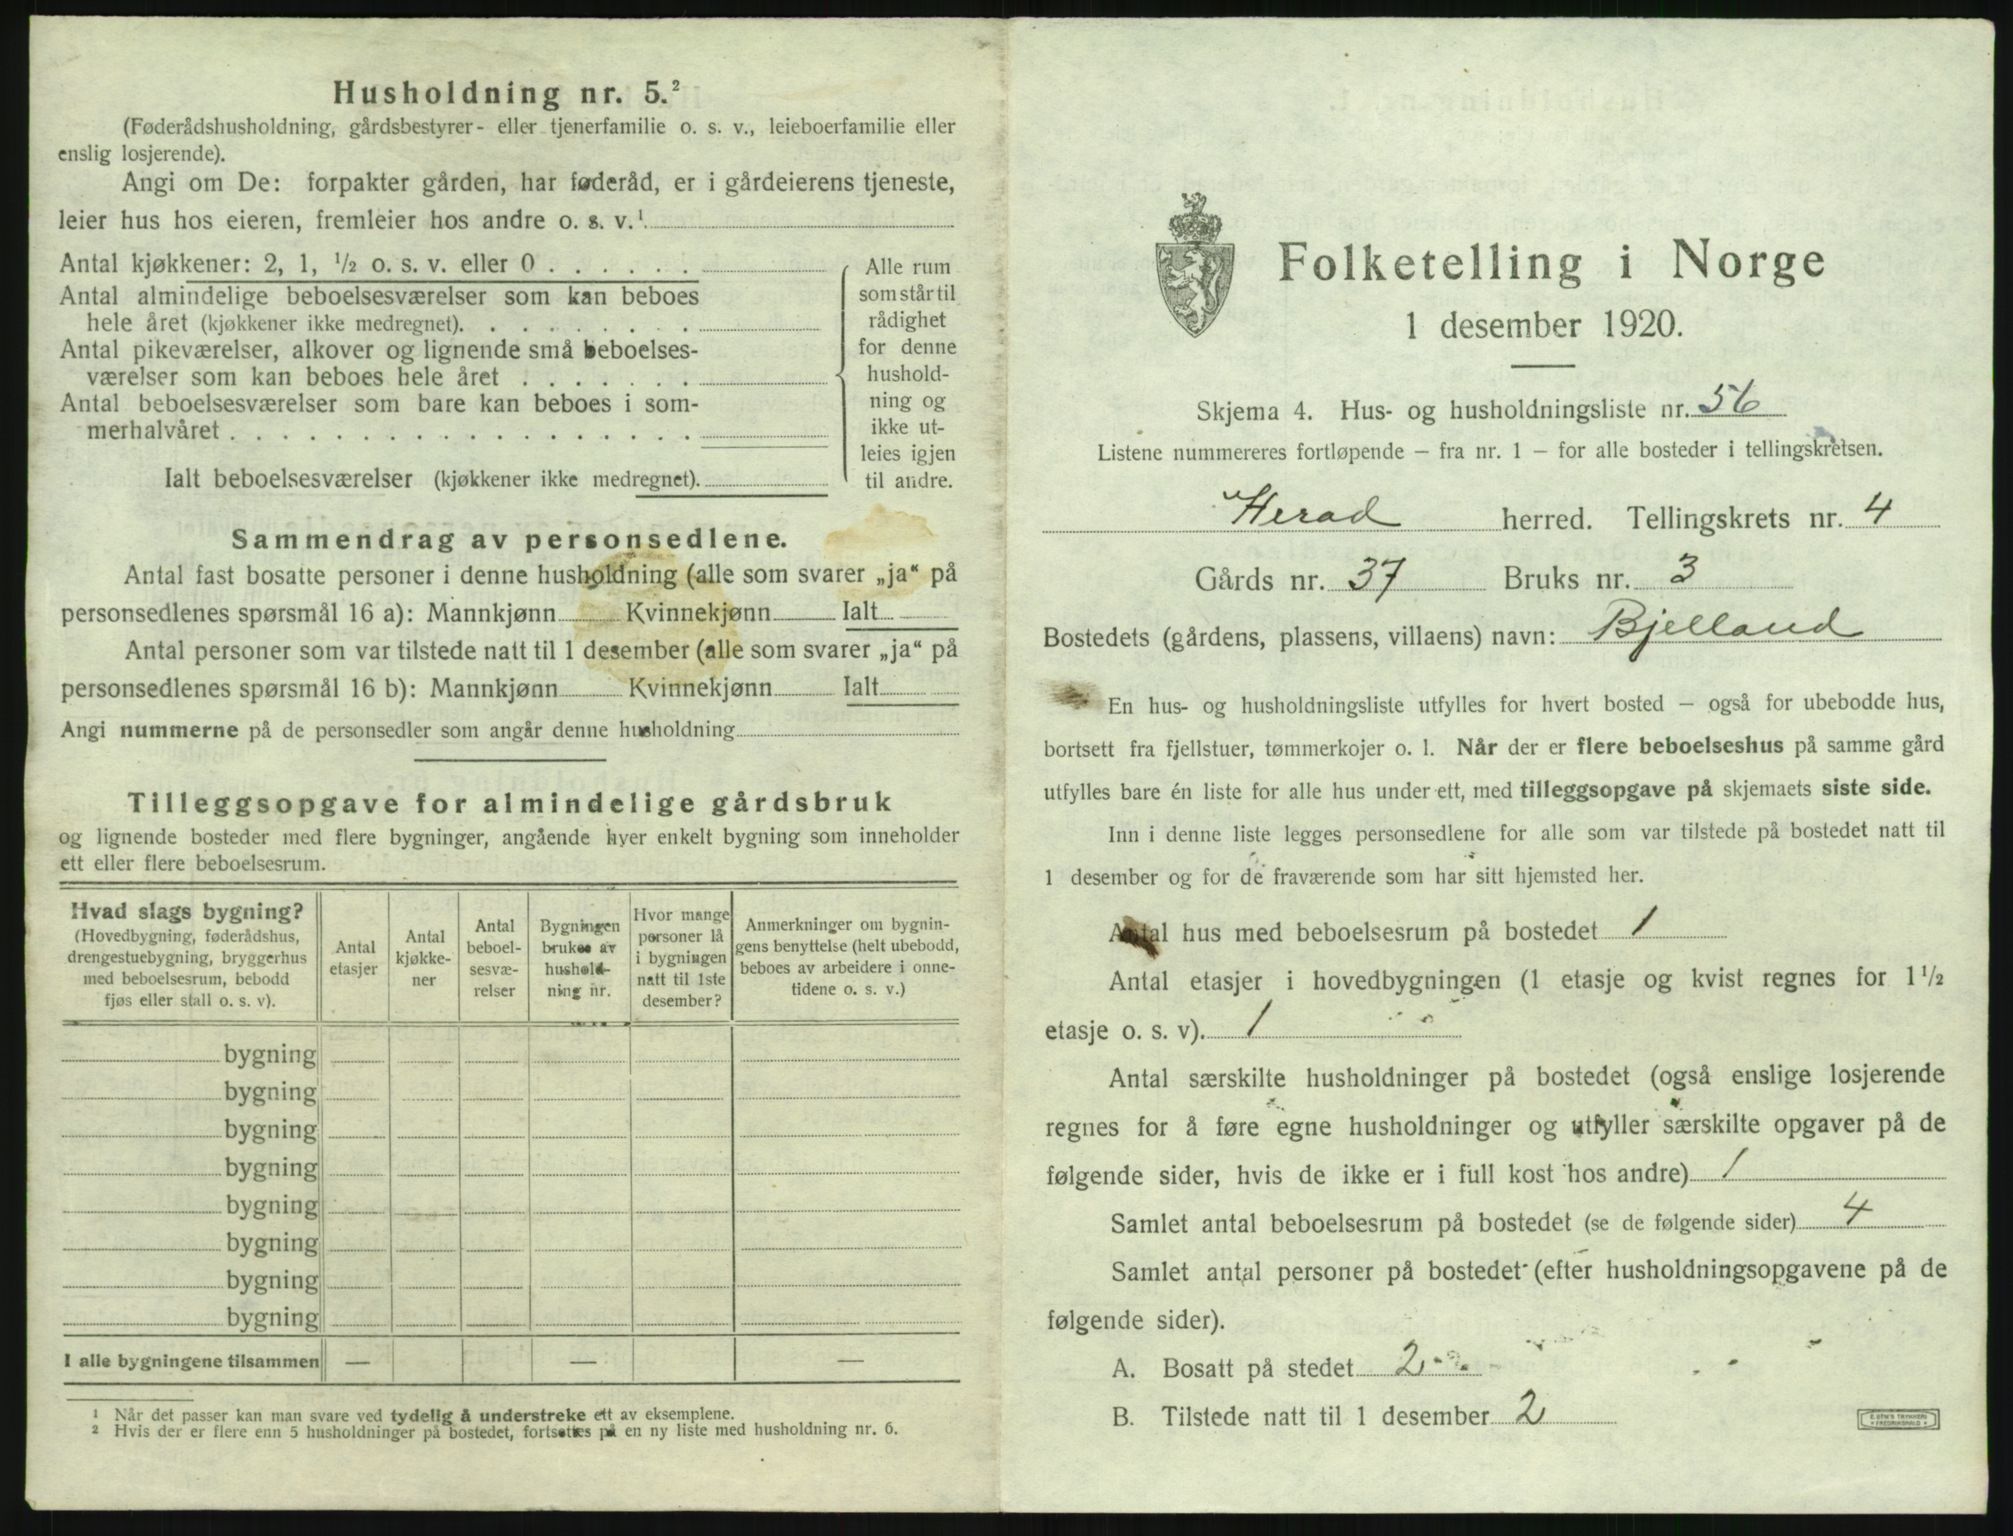 Husholdning nr. 5.²
(Føderådshusholdning, gårdsbestyrer- eller tjenerfamilie o. s. v., leieboerfamilie eller
enslig losjerende).
Angi om De: forpakter gården, har føderåd, er i gårdeierens tjeneste,
leier hus hos eieren, fremleier hos andre o. s. v.¹
Antal kjøkkener: 2, 1, ½ o. s. v. eller 0 . . . . . .
Antal almindelige beboelsesværelser som kan beboes
hele året (kjøkkener ikke medregnet). . . . . . . . .
Antal pikeværelser, alkover og lignende små beboelses-
værelser som kan beboes hele året . . . . . . .
Antal beboelsesværelser som bare kan beboes i som-
merhalvåret . . . . . . . . . . . . . . . . . .
Ialt beboelsesværelser (kjøkkener ikke medregnet).
Alle rum
som står til
rådighet
for denne
hushold-
ning og
ikke ut-
leies igjen
til andre.
Sammendrag av personsedlene.
Antal fast bosatte personer i denne husholdning (alle som svarer „ja“ på
personsedlenes spørsmål 16 a): Mannkjønn Kvinnekjønn Ialt
Antal personer som var tilstede natt til 1 desember (alle som svarer „ja“ på
personsedlenes spørsmål 16 b): Mannkjønn Kvinnekjønn Ialt
Angi nummerne på de personsedler som angår denne husholdning
Tilleggsopgave for almindelige gårdsbruk
og lignende bosteder med flere bygninger, angående hver enkelt bygning som inneholder
ett eller flere beboelsesrum.
Hvad slags bygning?
(Hovedbygning, føderådshus,
drengestuebygning, bryggerhus
med beboelsesrum, bebodd
fjøs eller stall o. s. v).
Antal
etasjer
Antal
kjøkke-
ner
Antal
beboel-
sesvæ-
relser
Bygningen
brukes av
hushold-
ning nr.
Hvor mange
personer lå
i bygningen
natt til 1ste
desember?
Anmerkninger om bygnin-
gens benyttelse (helt ubebodd,
beboes av arbeidere i onne-
tidene o. s. v.)
bygning
bygning
bygning
bygning
bygning
bygning
bygning
bygning
I alle bygningene tilsammen — — —
¹ Når det passer kan man svare ved tydelig å understreke ett av eksemplene.
² Hvis der er flere enn 5 husholdninger på bostedet, fortsettes på en ny liste med husholdning nr. 6.
Folketelling i Norge
1 desember 1920.
Skjema 4. Hus- og husholdningsliste nr. 56
Listene nummereres fortløpende – fra nr. 1 – for alle bosteder i tellingskretsen.
Herad herred. Tellingskrets nr. 4
Gårds nr. 37 Bruks nr. 3
Bostedets (gårdens, plassens, villaens) navn: Bjelland
En hus- og husholdningsliste utfylles for hvert bosted – også for ubebodde hus,
bortsett fra fjellstuer, tømmerkojer o. l. Når der er flere beboelseshus på samme gård
utfylles bare én liste for alle hus under ett, med tilleggsopgave på skjemaets siste side.
Inn i denne liste legges personsedlene for alle som var tilstede på bostedet natt til
1 desember og for de fraværende som har sitt hjemsted her.
Antal hus med beboelsesrum på bostedet 1
Antal etasjer i hovedbygningen (1 etasje og kvist regnes for 1½
etasje o. s. v). 1
Antal særskilte husholdninger på bostedet (også enslige losjerende
regnes for å føre egne husholdninger og utfyller særskilte opgaver på de
følgende sider, hvis de ikke er i full kost hos andre) 1
Samlet antal beboelsesrum på bostedet (se de følgende sider) 4
Samlet antal personer på bostedet (efter husholdningsopgavene på de
følgende sider).
A. Bosatt på stedet 2
B. Tilstede natt til 1 desember 2